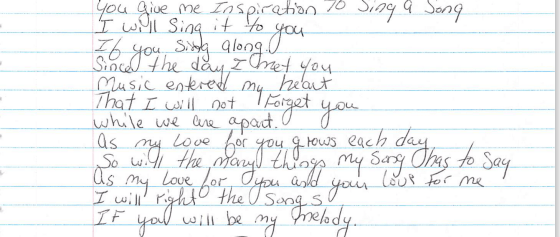 You give me Inspiration To Sing a Song
I will Sing it to you
If you sing along.
Since the day I met you
Music entered my heart
That I will not Forget you
while we are apart.
As my Love for you grows each day
So will the many things my Song has to Say
As my Love for you and your love For me
I will right the Songs
IF you will be my melody.